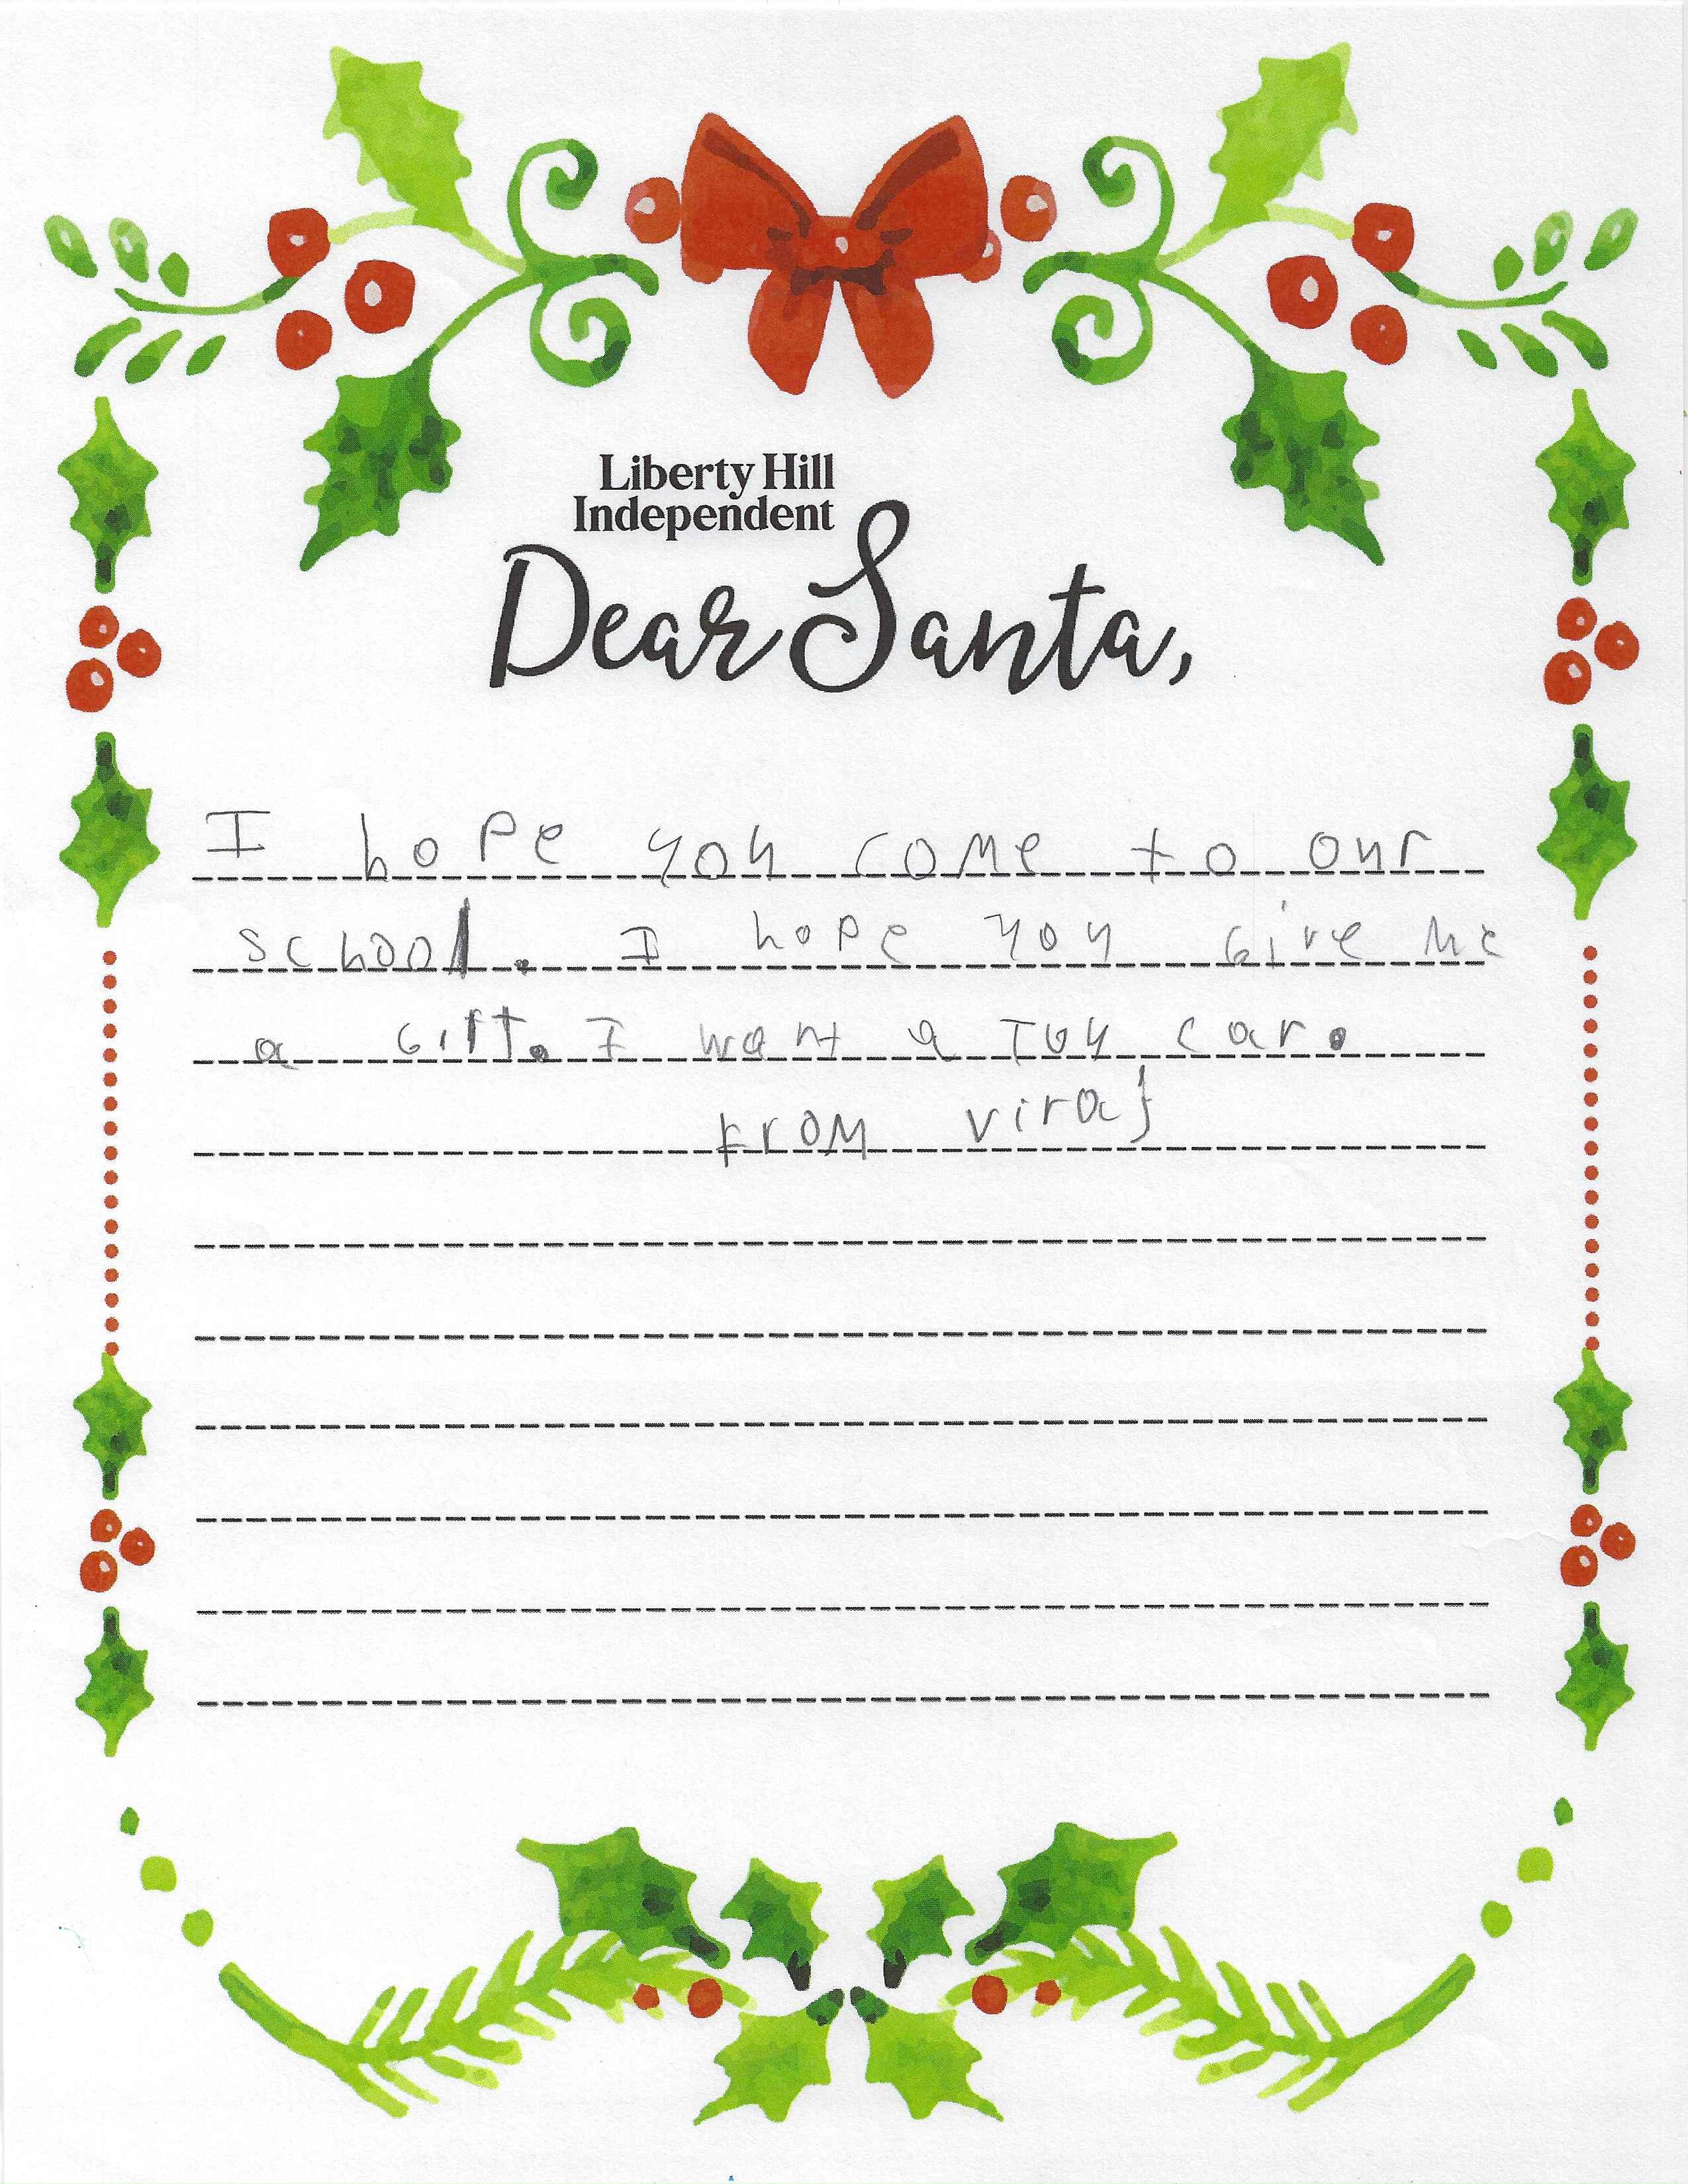 Liberty Hill
Independent
Dear Santa,
I hope you come to our
school. I hope you Give me
a Gift. I want a Toy car.
From viraj